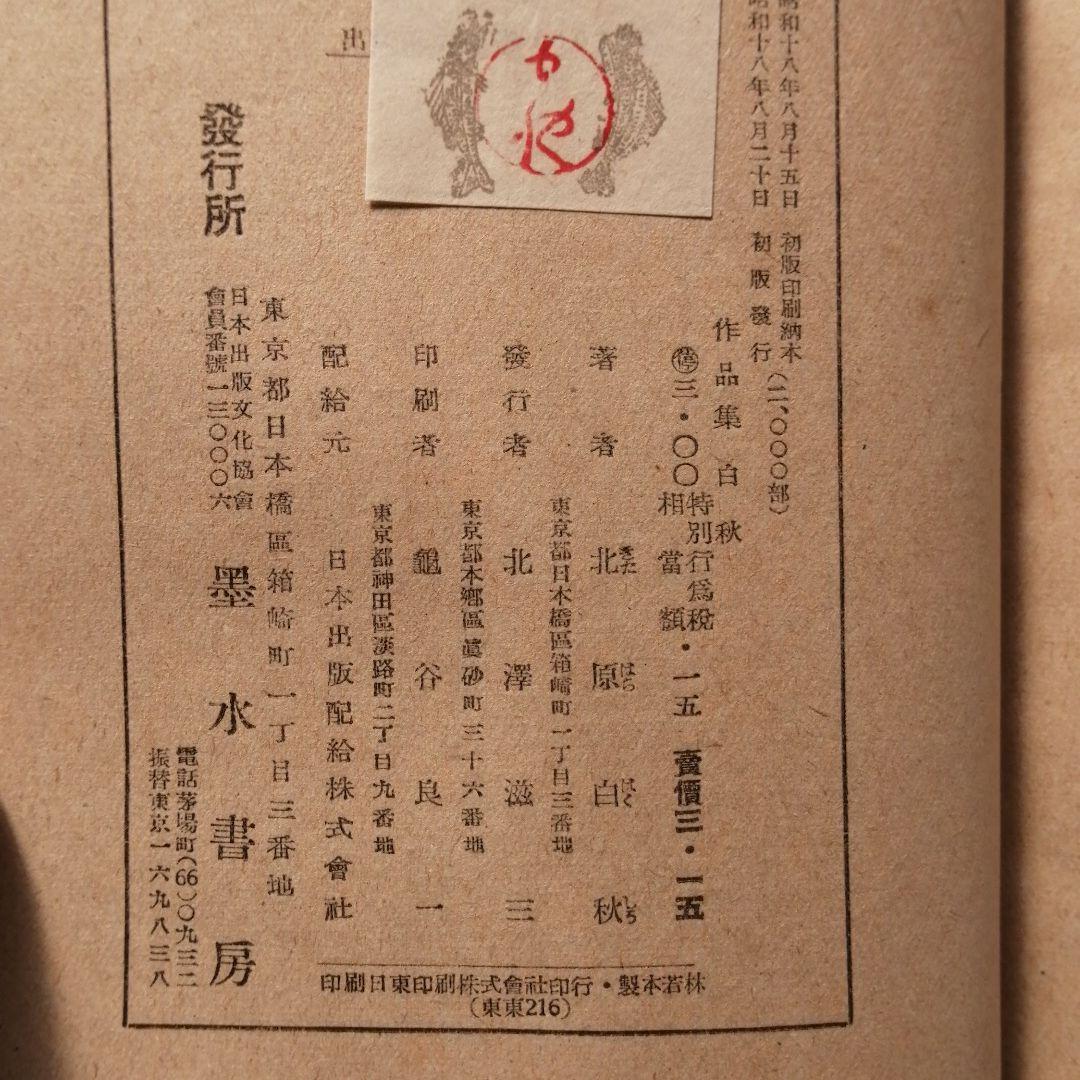 昭和十八年八月十五日 初版印刷納本(二、〇〇〇部)
昭和十八年八月二十日 初版發行
作品集白秋
㊡三・〇〇 特別行爲税相當額・一五 賣價三・一五
著者 北原白秋
きた はら はく しう
東京都日本橋區箱崎町一丁目三番地
發行者 北澤滋三
東京都本鄕區眞砂町三十六番地
印刷者 龜谷良一
東京都神田區淡路町二丁目九番地
配給元 日本出版配給株式會社
東京都日本橋區箱崎町一丁目三番地
發行所 日本出版文化協會會員番號一三〇〇〇六 墨水書房
電話茅場町(66)〇九三二
振替東京一六九八三八
印刷日東印刷株式會社印行・製本若林
(東東216)
出